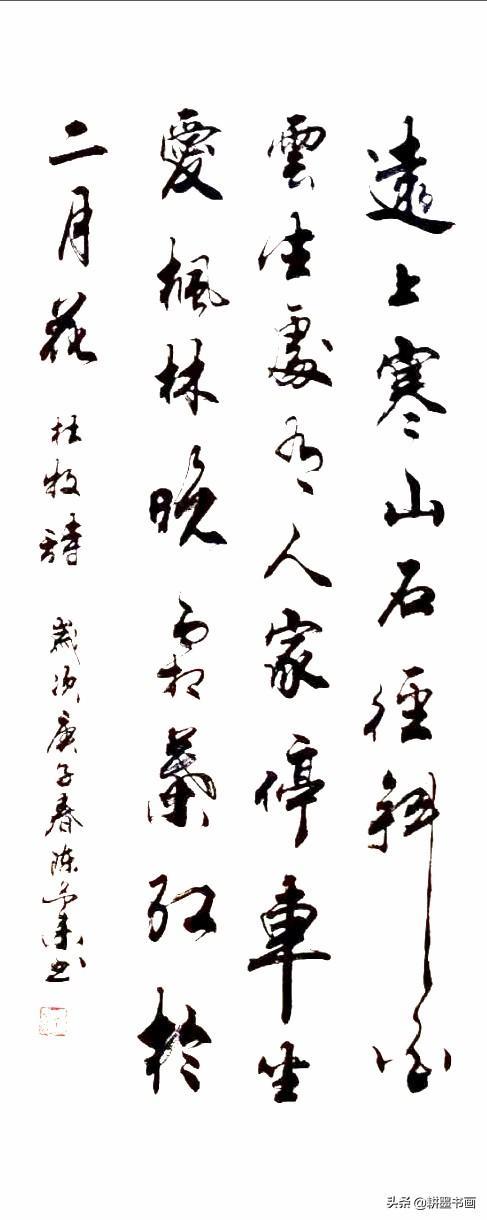 遠上寒山石徑斜白
雲生處有人家停車坐
愛楓林晚霜葉紅於
二月花 杜牧詩 歲次庚子春陈 书
头条 @耕墨书画